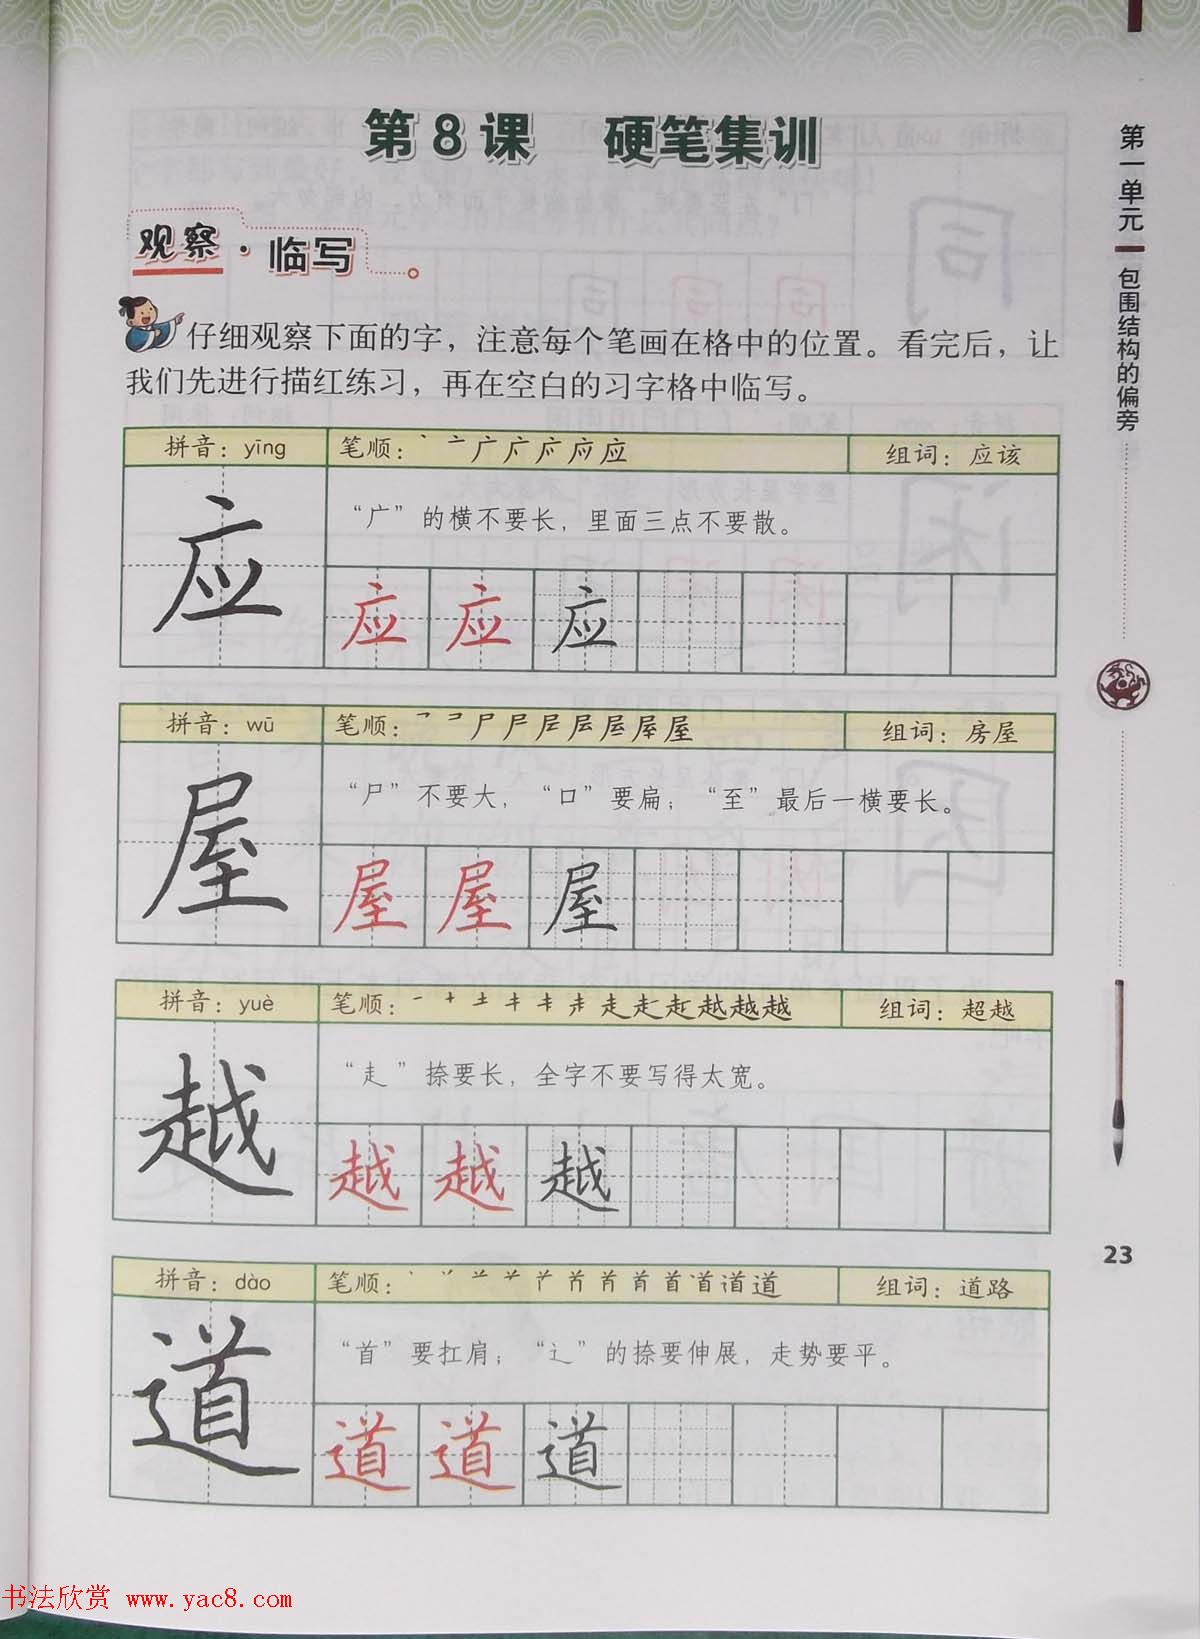 第8课 硬笔集训
观察·临写
仔细观察下面的字，注意每个笔画在格中的位置。看完后，让
我们先进行描红练习，再在空白的习字格中临写。
拼音：yīng 笔顺： 应 组词：应该
应
“广”的横不要长，里面三点不要散。
应 应 应
拼音：wū 笔顺： 尸 屋 组词：房屋
屋
“尸”不要大，“口”要扁；“至”最后一横要长。
屋 屋 屋
拼音：yuè 笔顺： 走 越 组词：超越
越
“走”捺要长，全字不要写得太宽。
越 越 越
拼音：dào 笔顺： 首 道 组词：道路
道
“首”要扛肩；“辶”的捺要伸展，走势要平。
道 道 道
第一单元 包围结构的偏旁
23
书法欣赏 www.yac8.com